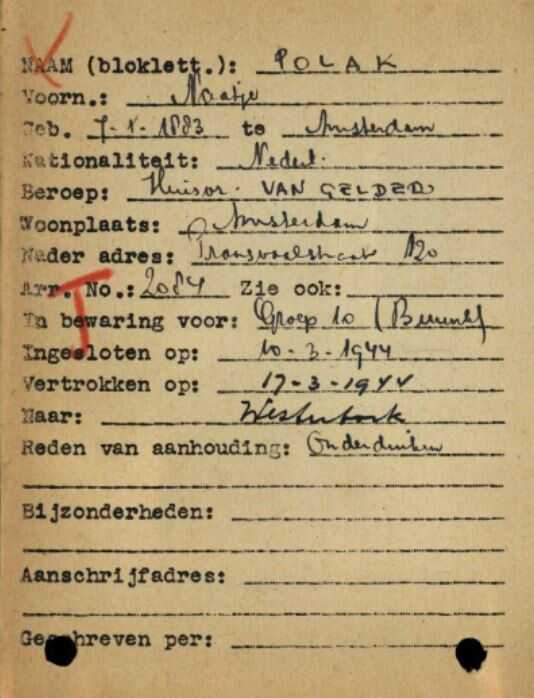 NAAM (bloklett.): POLAK
Voorn.: Naatje
Geb. 7-8-1883 te Amsterdam
Nationaliteit: Nederl.
Beroep: Huisvr. VAN GELDER
Woonplaats: Amsterdam
Nader adres: Transvaalstraat 120
Arr. No.: 2084 Zie ook:
J
In bewaring voor: Groep 10
Ingesloten op: 10-3-1944
Vertrokken op: 17-3-1944
Naar: Westerbork
Reden van aanhouding: Onderduiken
Bijzonderheden:
Aanschrijfadres:
Geschreven per: